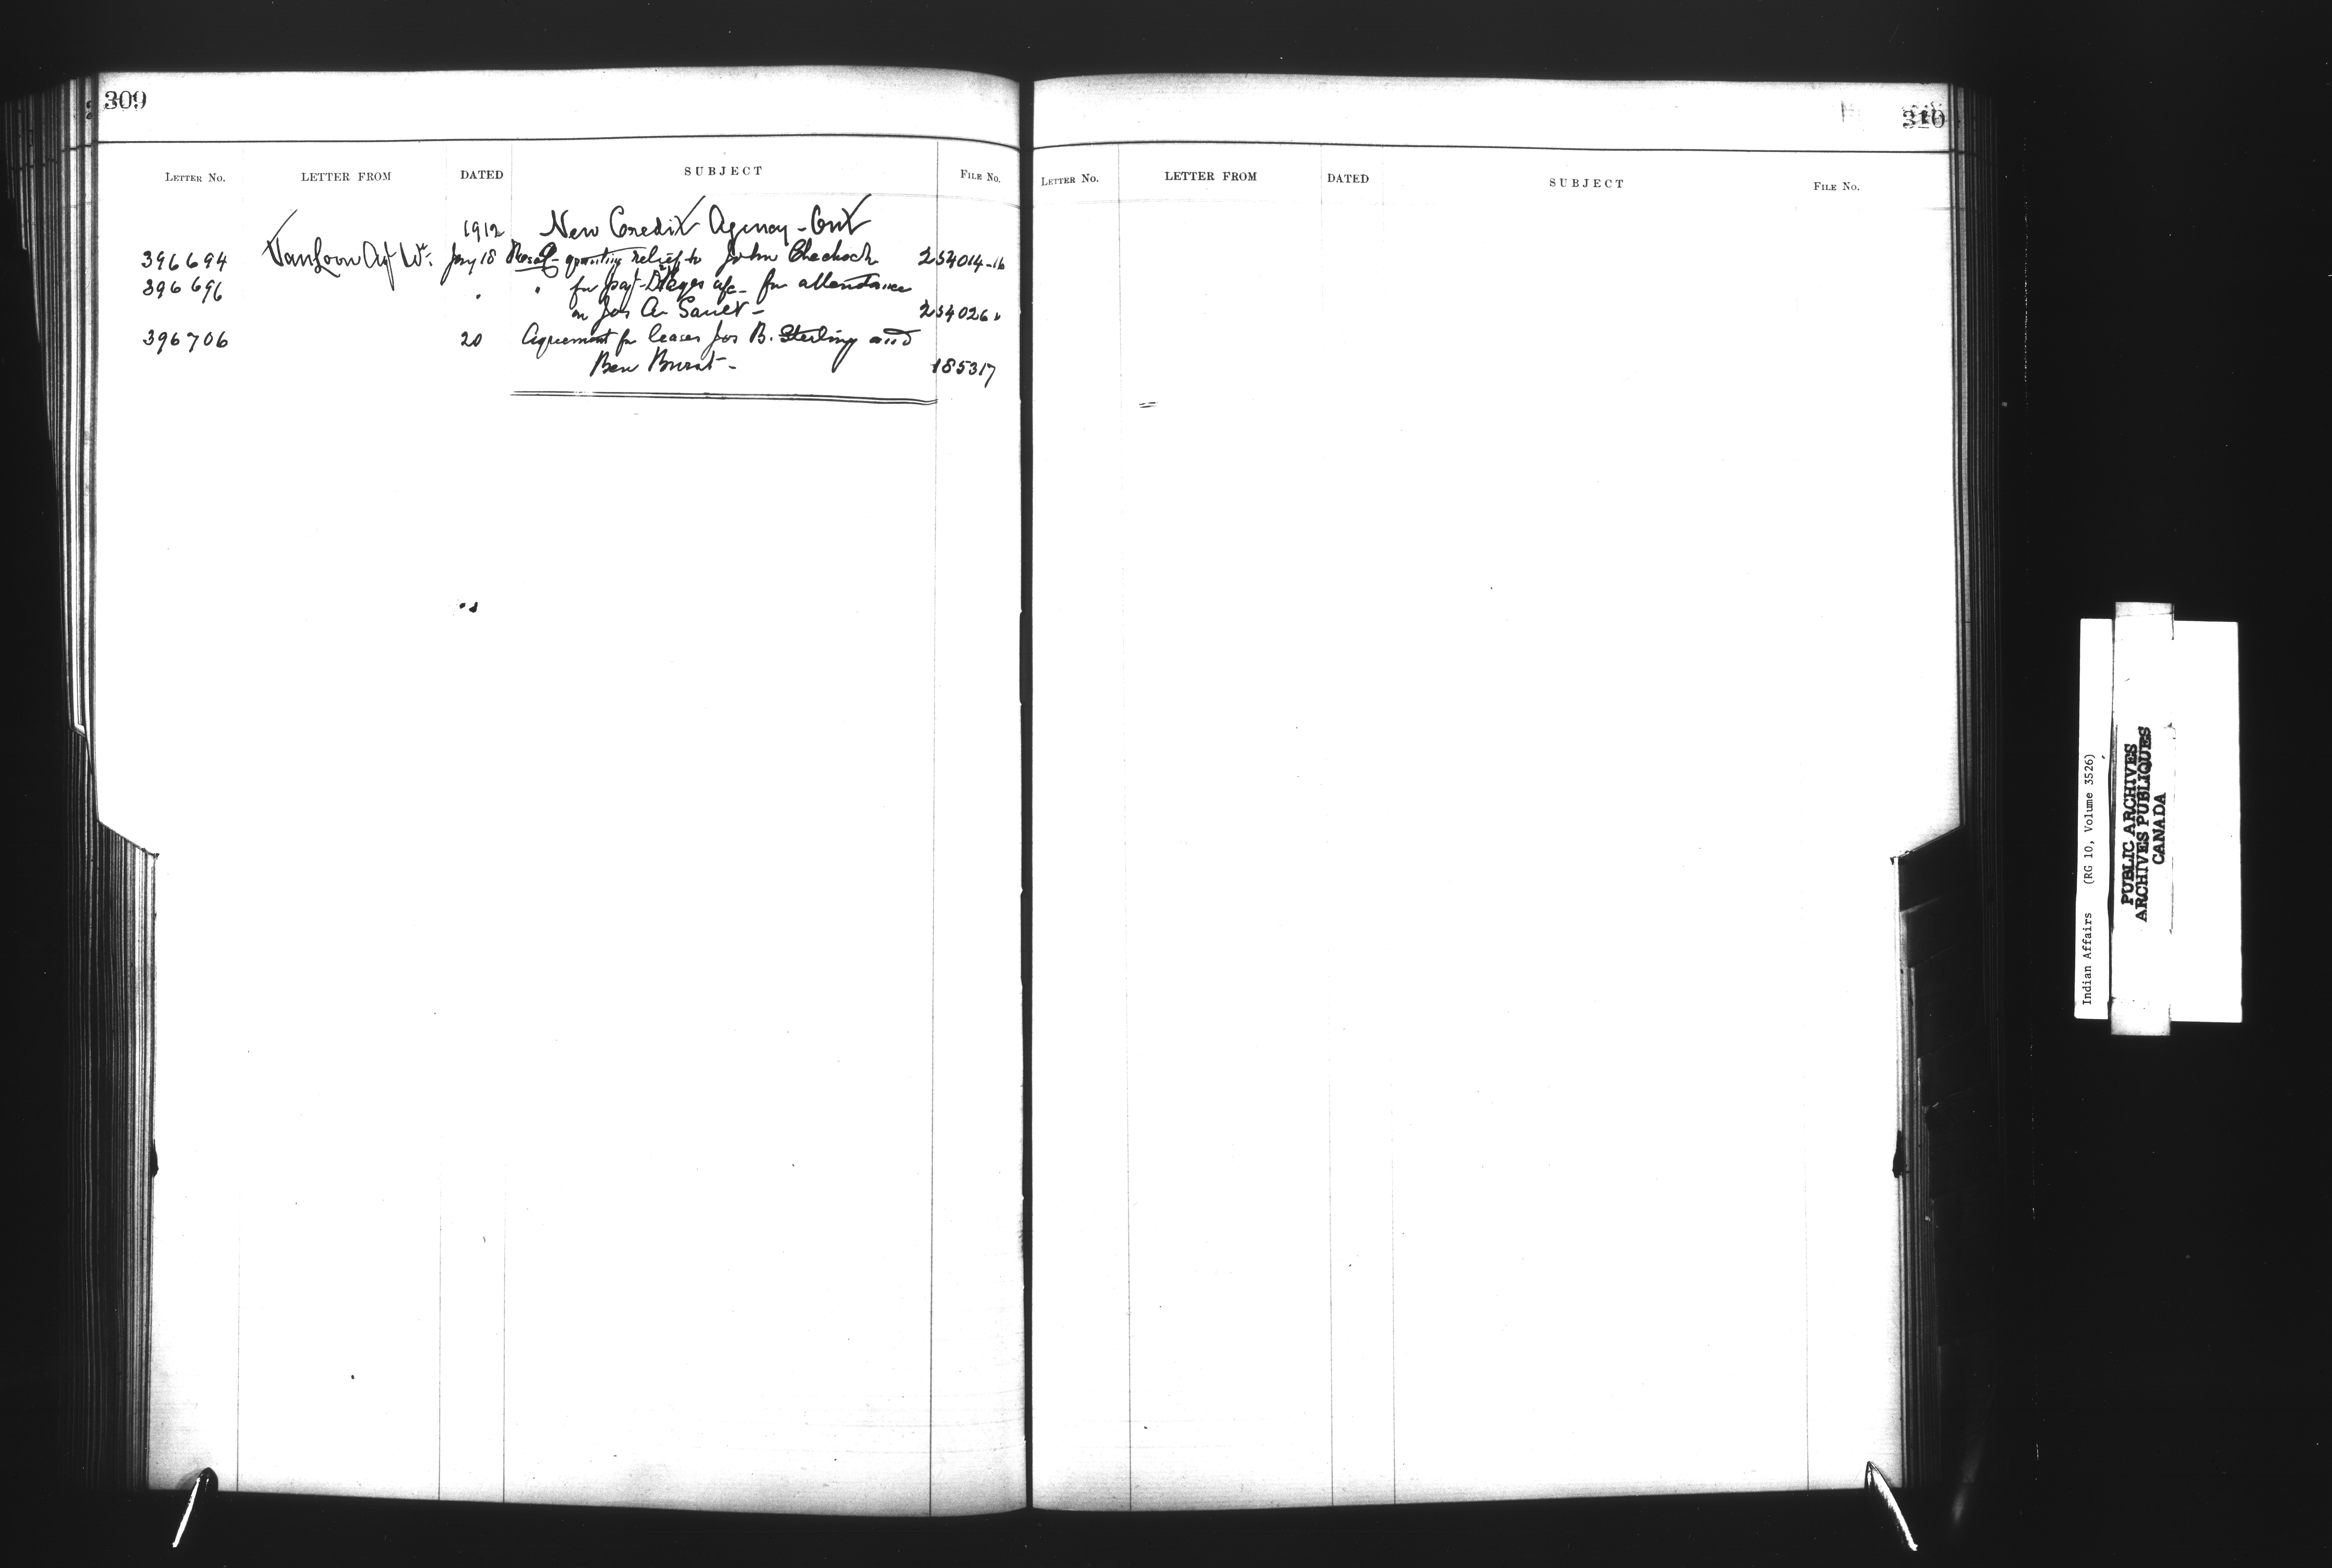 309
LETTER NO. LETTER FROM DATED SUBJECT FILE NO.
1912 New Credit Agency - Ont
396694 VanLoon Agt W. Jany 18 Resol- granting relief to John Checkock 254014-16
396696 " " for payt Dr a/c for attendance
on Jos A. Sault - 254026
396706 20 Agreement for leases Jos B. Sterling and
Ben - 185317
310
LETTER NO. LETTER FROM DATED SUBJECT FILE NO.
Indian Affairs (RG 10, Volume 3526)
PUBLIC ARCHIVES
ARCHIVES PUBLIQUES
CANADA